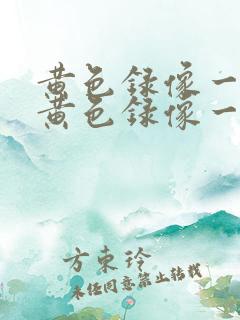 黄色録像一
黄色録像一
方東玲
未经同意禁止转载